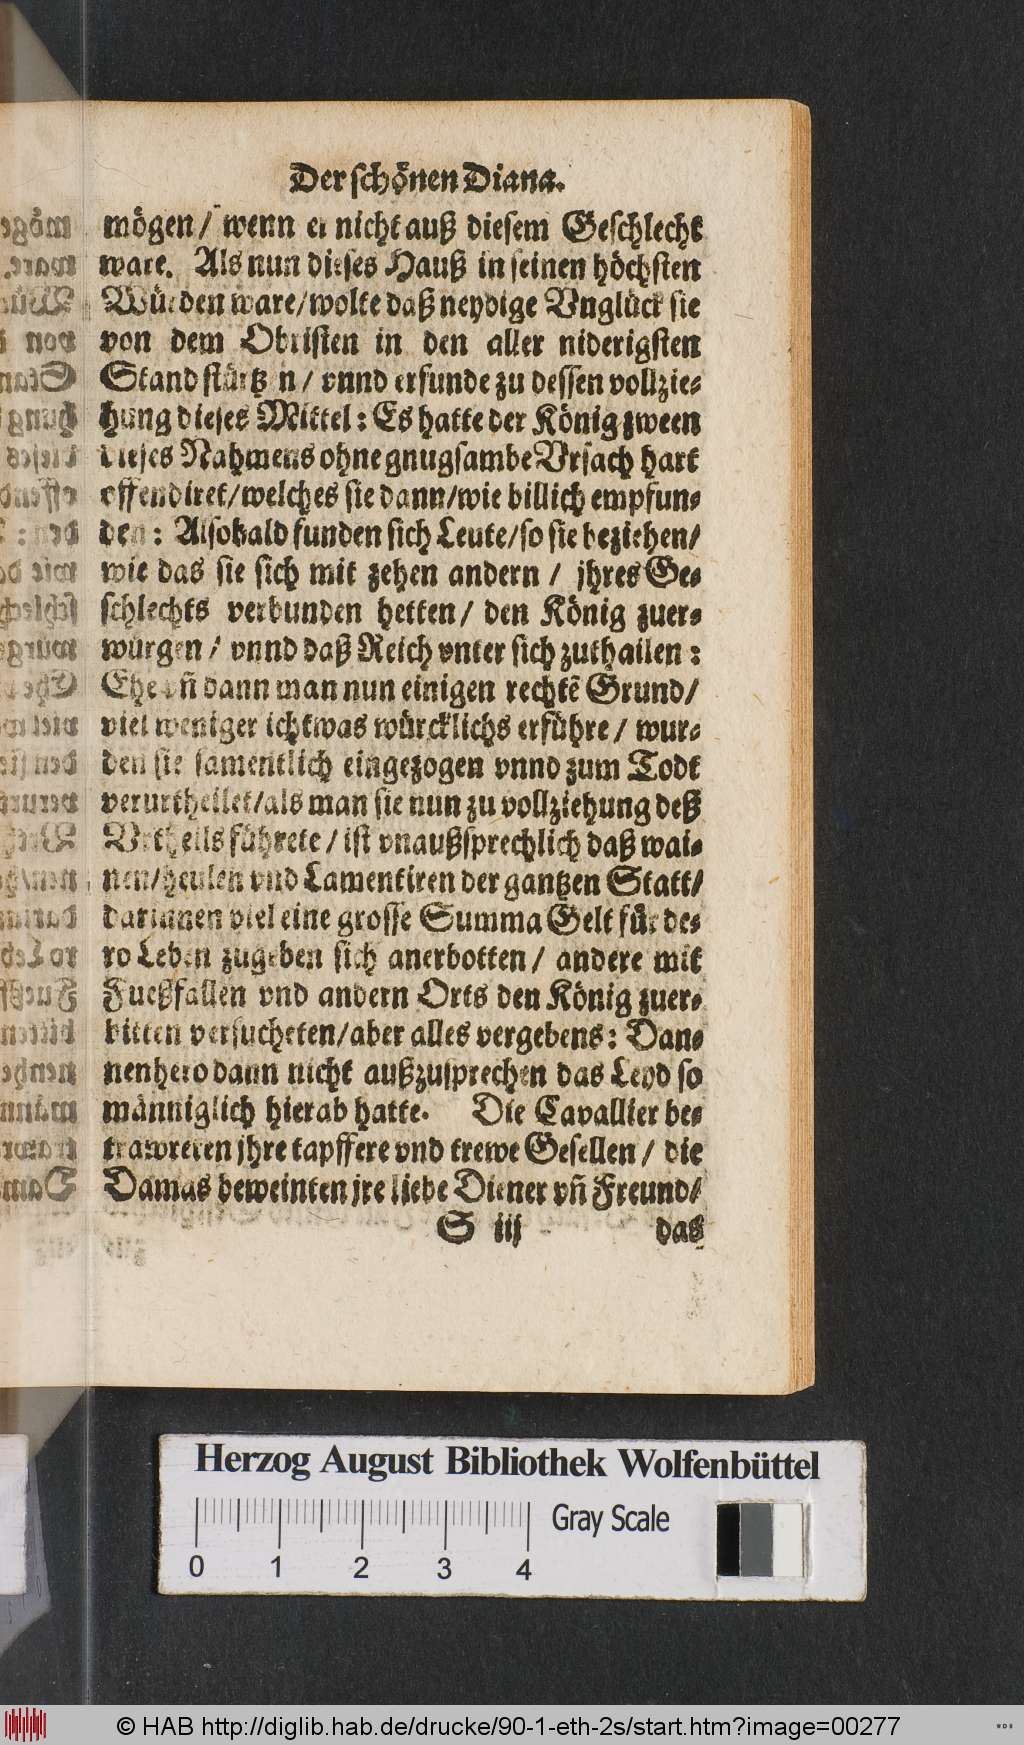 Der schönen Diana.
mögen / wenn er nicht auß diesem Geschlecht
ware. Als nun dieses Hauß in seinen höchsten
Würden ware / wolte daß neydige Vnglück sie
von dem Obristen in den aller niderigsten
Stand stürtzen / vnnd erfunde zu dessen vollzie-
hung dieses Mittel : Es hatte der König zween
dieses Nahmens ohne gnugsambe Vrsach hart
offendiret / welches sie dann / wie billich empfun-
den : Alsobald funden sich Leute / so sie beziehen /
wie das sie sich mit zehen andern / jhres Ge-
schlechts verbunden hetten / den König zuer-
würgen / vnnd daß Reich vnter sich zuthailen :
Ehe vñ dann man nun einigen rechtẽ Grund /
viel weniger ichtwas würcklichs erführe / wur-
den sie samentlich eingezogen vnnd zum Todt
verurtheilet / als man sie nun zu vollziehung deß
Vrtheils führete / ist vnaußsprechlich daß wai-
nen / heulen vnd Lamentiren der gantzen Statt /
darinnen viel eine grosse Summa Gelt für de-
ro Leben zugeben sich anerbotten / andere mit
Fueßfallen vnd andern Orts den König zuer-
bitten versucheten / aber alles vergebens : Dan-
nenhero dann nicht außzusprechen das Leyd so
männiglich hierab hatte. Die Cavallier be-
trawreten jhre tapffere vnd trewe Gesellen / die
Damas beweinten jre liebe Diener vñ Freund /
S iij das
Herzog August Bibliothek Wolfenbüttel
Gray Scale
0 1 2 3 4
© HAB http://diglib.hab.de/drucke/90-1-eth-2s/start.htm?image=00277